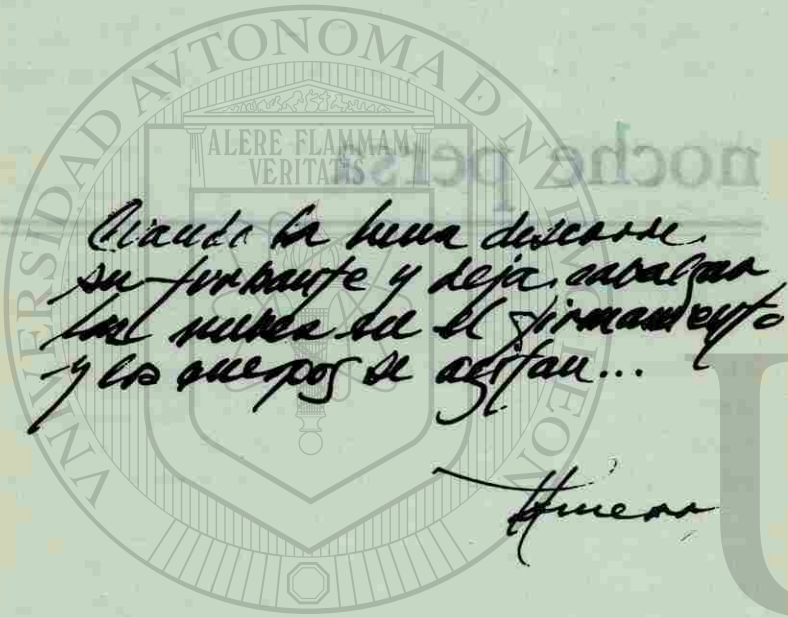 UNIVERSIDAD AUTONOMA DE NUEVO LEON
ALERE FLAMMAM
VERITATIS
noche persa
Cuando la luna descorre
su turbante y deja cabalgar
las nubes en el firmamento
y los cuerpos se agitan...
U